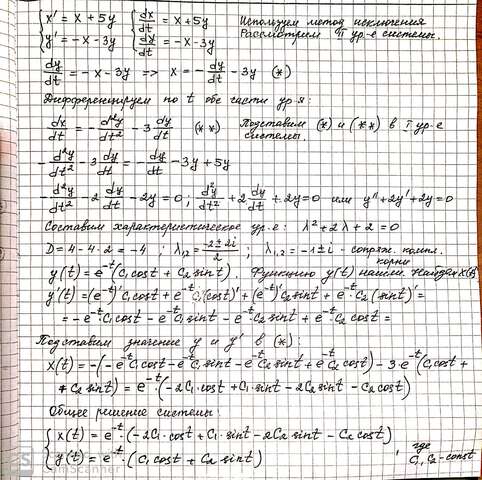 { x' = x + 5y { dx/dt = x + 5y Используем метод исключения
{ y' = -x - 3y { dy/dt = -x - 3y Рассмотрим II ур-е системы.
dy/dt = -x - 3y => x = - dy/dt - 3y (*)
Дифференцируем по t обе части ур-я:
dx/dt = - d²y/dt² - 3 dy/dt (**) Подставим (*) и (**) в I ур-е системы.
- d²y/dt² - 3 dy/dt = - dy/dt - 3y + 5y
- d²y/dt² - 2 dy/dt - 2y = 0; d²y/dt² + 2 dy/dt + 2y = 0 или y'' + 2y' + 2y = 0
Составим характеристическое ур-е: λ² + 2λ + 2 = 0
D = 4 - 4·2 = -4 ; λ1,2 = (-2 ± 2i)/2 ; λ1,2 = -1 ± i - сопряж. компл. корни
y(t) = e^-t (C1 cost + C2 sint). Функцию y(t) нашли. Найдём x(t)
y'(t) = (e^-t)' C1 cost + e^-t C1 (cost)' + (e^-t)' C2 sint + e^-t C2 (sint)' =
= -e^-t C1 cost - e^-t C1 sint - e^-t C2 sint + e^-t C2 cost =
Подставим значение y и y' в (*):
x(t) = -(-e^-t C1 cost - e^-t C1 sint - e^-t C2 sint + e^-t C2 cost) - 3·e^-t (C1 cost +
+ C2 sint) = e^-t · (-2C1 · cost + C1 sint - 2C2 sint - C2 cost)
Общее решение системы:
{ x(t) = e^-t · (-2C1 · cost + C1 · sint - 2C2 sint - C2 cost)
{ y(t) = e^-t · (C1 cost + C2 sint) , где C1, C2 - const
CS CamScanner